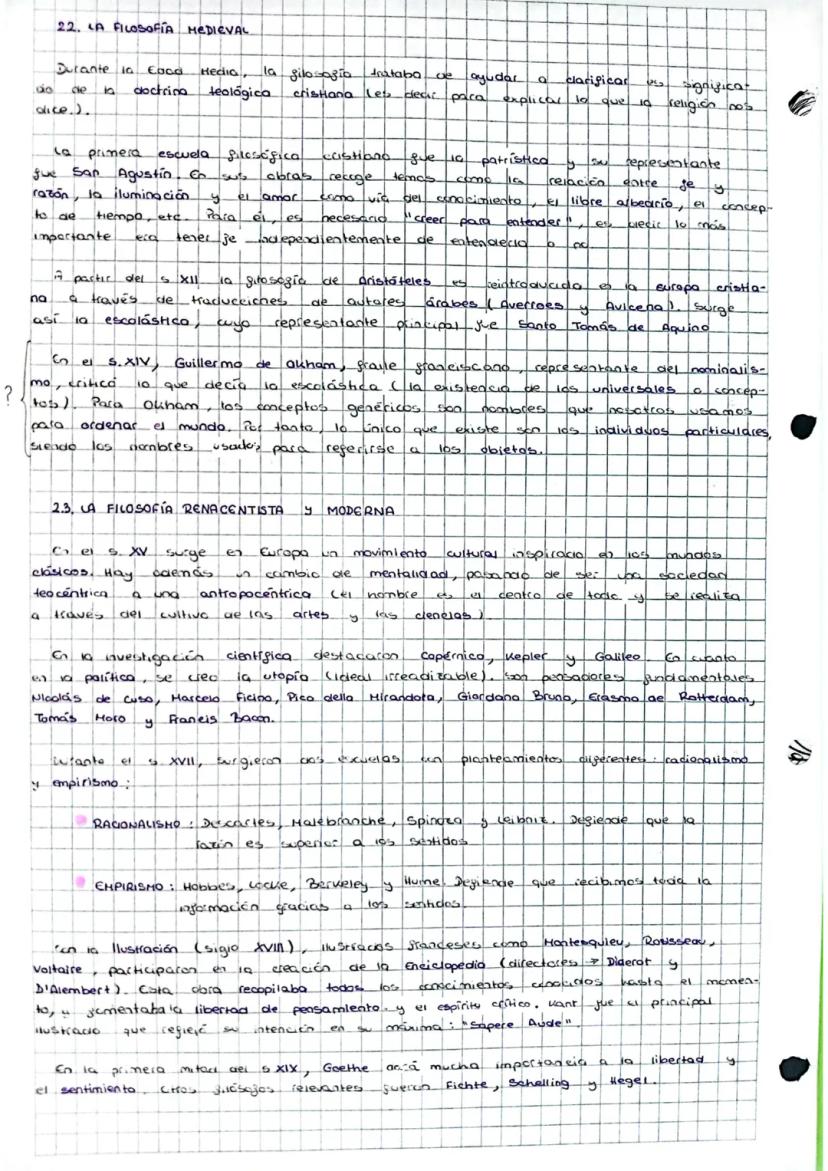 2.2. LA FILOSOFÍA MEDIEVAL
Durante la Edad Media, la filosofía trataba de ayudar a clarificar los significa-
do de la doctrina teológica cristiana (es decir para explicar lo que la religión nos
dice.).
La primera escuela filosófica cristiana fue la patrística y su representante
fue San Agustín. En sus obras recoge temas como la relación entre fe y
razón, la iluminación y el amor como vía del conocimiento, el libre albedrío, el concep-
to de tiempo, etc. Para él, es necesario "creer para entender", es decir lo más
importante era tener fe independientemente de entenderla o no.
A partir del s XII la filosofía de Aristóteles es reintroducida en la Europa cristia-
na a través de traducciones de autores árabes (Averroes y Avicena). Surge
así la escolástica, cuyo representante principal fue Santo Tomás de Aquino
En el s.XIV, Guillermo de Okham, fraile franciscano, representante del nominalis-
? mo, criticó lo que decía la escolástica (la existencia de los universales o concep-
tos). Para Okham, los conceptos genéricos son nombres que nosotros usamos
para ordenar el mundo. Por tanto, lo único que existe son los individuos particulares,
siendo los nombres usados para referirse a los objetos.
2.3. LA FILOSOFÍA RENACENTISTA Y MODERNA
En el s. XV surge en Europa un movimiento cultural inspirado en los mundos
clásicos. Hay además un cambio de mentalidad, pasando de ser una sociedad
teocéntrica a una antropocéntrica (el hombre es el centro de todo y se realiza
a través del cultivo de las artes y las ciencias)
En la investigación científica destacaron Copérnico, Kepler y Galileo. En cuanto
en la política, se creó la utopía (ideal irrealizable). Son pensadores fundamentales
Nicolás de Cusa, Marcelo Ficino, Pico della Mirandola, Giordano Bruno, Erasmo de Rotterdam,
Tomás Moro y Francis Bacon.
Durante el s. XVII, surgieron dos escuelas con planteamientos diferentes: racionalismo
y empirismo:
RACIONALISMO: Descartes, Malebranche, Spinoza y Leibniz. Defiende que la
razón es superior a los sentidos
EMPIRISMO: Hobbes, Locke, Berkeley y Hume. Defiende que recibimos toda la
información gracias a los sentidos.
En la Ilustración (siglo XVIII), ilustrados franceses como Montesquieu, Rousseau,
Voltaire, participaron en la creación de la Enciclopedia (directores → Diderot y
D'Alembert). Esta obra recopilaba todos los conocimientos conocidos hasta el momen-
to, y fomentaba la libertad de pensamiento y el espíritu crítico. Kant fue el principal
ilustrado que reflejó su intención en su máxima: "Sapere Aude".
En la primera mitad del s XIX, Goethe dará mucha importancia a la libertad y
el sentimiento. Otros filósofos relevantes fueron Fichte, Schelling y Hegel.